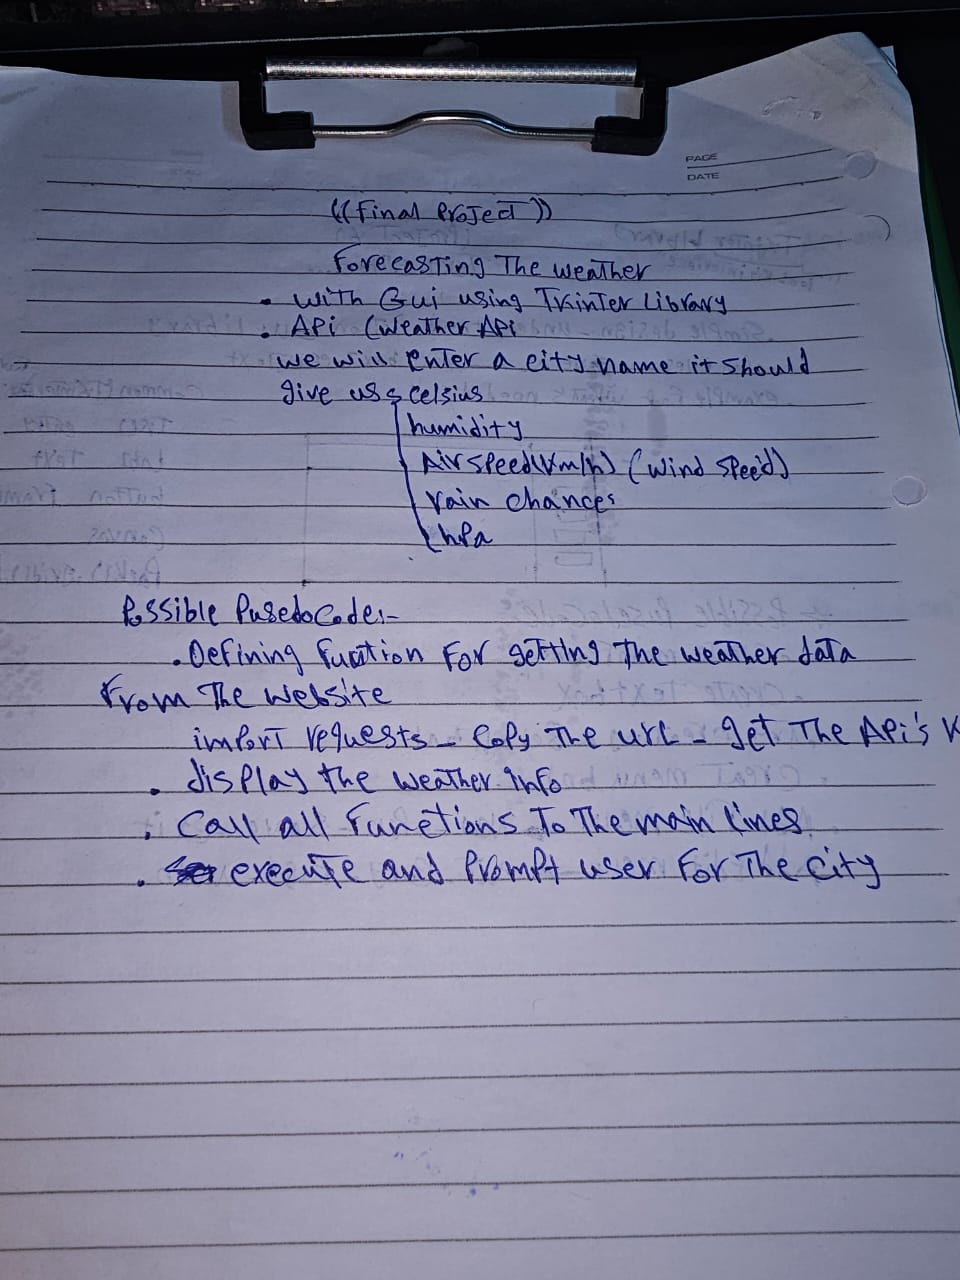 PAGE
DATE
((Final Project))
Forecasting The weather
• with Gui using Tkinter Library
• APi (weather APi
we will enter a city name it should
give us { celsius
humidity
Air speed (km/h) (wind speed)
rain chances
hPa
Possible PusedoCode:-
• Defining function For getting The weather data
From The website
import requests - Copy The url - get The APi's K
• display the weather info
• Call all functions To The main lines
• execute and Prompt user For The city